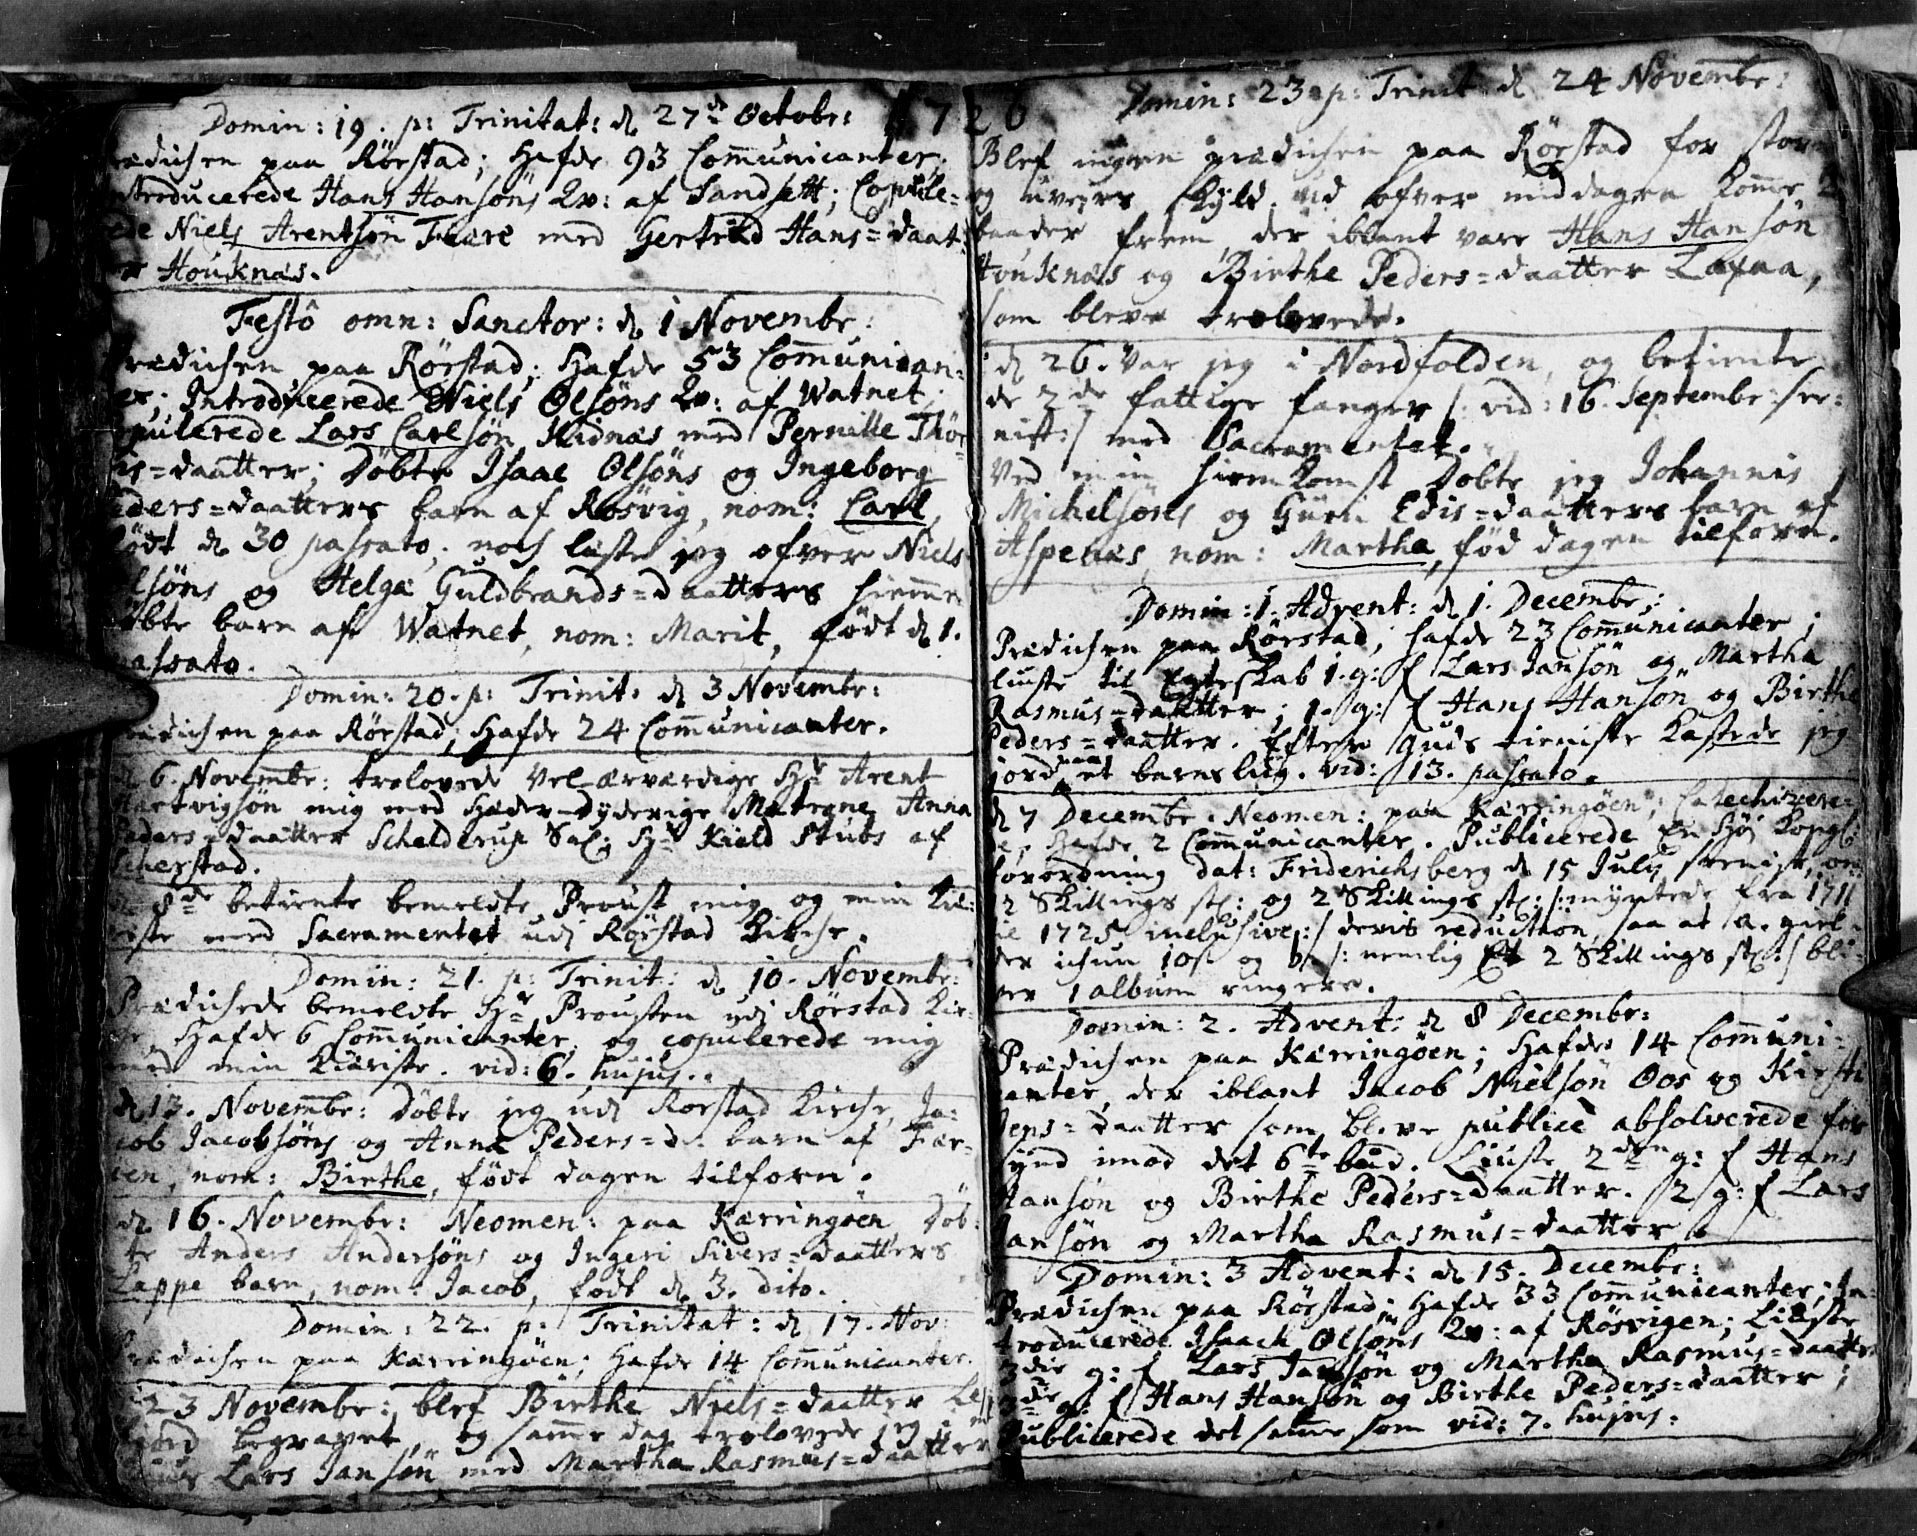 1726
Domin: 19. p: Trinitat: d. 27de Octobr:
rædichen paa Rörstad; Hafde 93 Communicanter;
ntroducerede Hans Hansöns Qv: af Sandsett; Copule-
rede Niels Arentsön Fære med Gertrud Hans=daat:
Houknæs.
Festô omn: Sanctor: d. 1 Novembr:
Prædichen paa Rörstad; Hafde 53 Communican-
ter; Introducerede Niels Olsöns Qv: af Watnet;
opulerede Lars Carlsön Kidnæs med Pernille Thör-
ris=daatter; Döbte Isaac Olsöns og Ingeborg
Peders=daatters barn af Rösvig, nom: Carl,
födt d. 30 passato; noch læste jeg ofver Niels
Olsöns og Helga Guldbrands=daatters hiemme
döbte barn af Watnet, nom: Marit, födt d. 1.
passato.
Domin: 20. p: Trinit: d. 3 Novembr:
Prædichen paa Rörstad; Hafde 24 Communicanter.
d. 6. Novembr: trolovede Vel-ærværdige Hr Arent
Hartvigsön mig med Hæder-dyderige Matrone Anna
Peders=daatter Schelderup Sal: Hr Kield Stubs af
Scherstad.
d. 8de betiente bemeldte Proust mig og min Kiæ-
riste med Sacramentet udj Rörstad Kirche.
Domin: 21. p: Trinit: d. 10. Novembr:
Prædichede bemeldte Hr Prousten udj Rörstad Kir-
che, Hafde 6 Communicanter, og copulerede mig
med min Kiæriste. vid: 6. hujus.
d. 13. Novembr: Döbte jeg udj Rörstad Kirche, Ja-
cob Jacobsöns og Anna Peders=d: barn af Fær-
ven, nom: Birthe, födt dagen tilforn.
d. 16. Novembr: Neomen: paa Kærringöen Döb-
te Anders Andersöns og Ingeri Sivers=daatters
Lappe barn, nom: Jacob, födt d. 3. dito.
Domin: 22. p: Trinitat: d. 17. Nov:
Prædichen paa Kærringöen; Hafde 14 Communicanter.
d. 23 Novembr: blef Birthe Niels=daatter
begravet, og samme dag trolovede jeg i
Lars Jansön med Martha Rasmus=daatter
Domin: 23 p: Trinit d. 24 Novembr:
Blef ingen prædichen paa Rörstad for storm
og uvejrs skyld. ved ofver middagen komme 2
baader frem, der iblant vare Hans Hansön
Houknæs og Birthe Peders=daatter Laxaa,
som bleve trolovede.
d. 26. var jeg i Nordfolden, og betiente
de 2de fattige fanger /: vid: 16. Septembr: se-
nist :/ med Sacramentet.
Ved min hiemkomst Döbte jeg Johannis
Michelsöns og Guri Edis=daatters barn af
Aspenæs, nom: Martha, föd dagen tilforn.
Domin: 1. Advent: d. 1. Decembr:
Prædichen paa Rörstad; hafde 23 Communicanter;
liuste til Egteskab 1. g: f Lars Jansön og Martha
Rasmus=daatter; 1. g: f Hans Hansön og Birthe
Peders=daatter. Efter Guds tieniste kastede jeg
jord paa et barns liig. vid: 13. passato.
d. 7 Decembr. Neomen: paa Kærringöen; Catechizere-
de, Hafde 2 Communicanter. Publicerede En Höj Kongl:
forordning dat: Friderichsberg d. 15 July sienist, om
12 Skillings st: og 2 Skillings st: /: myntede fra 1711
til 1725 inclusive :/ deris reduction, saa at a. giel-
der ichun 10 s. og b. /: nemlig Et 2 Skillings st: :/ bli-
ver 1 album ringere.
Domin: 2. Advent: d. 8 Decembr:
Prædichen paa Kærringöen; Hafde 14 Communi-
canter, der iblant Jacob Nielsön Oos og Kirsti
Jens=daatter som bleve publicé absolverede for
synd imod det 6te bud. Liuste 2den g: f Hans
Hansön og Birthe Peders=daatter. 2 g: f Lars
Jansön og Martha Rasmus=daatter.
Domin: 3 Advent: d. 15. Decembr:
Prædichen paa Rörstad; Hafde 33 Communicanter; In-
troducerede Isaach Olsöns Qv: af Rösvigen; Liuste
3die g: f Lars Jansön og Martha Rasmus=daatter
3die g: f Hans Hansön og Birthe Peders=daatter;
Publicerede det samme som vid: 7. hujus.